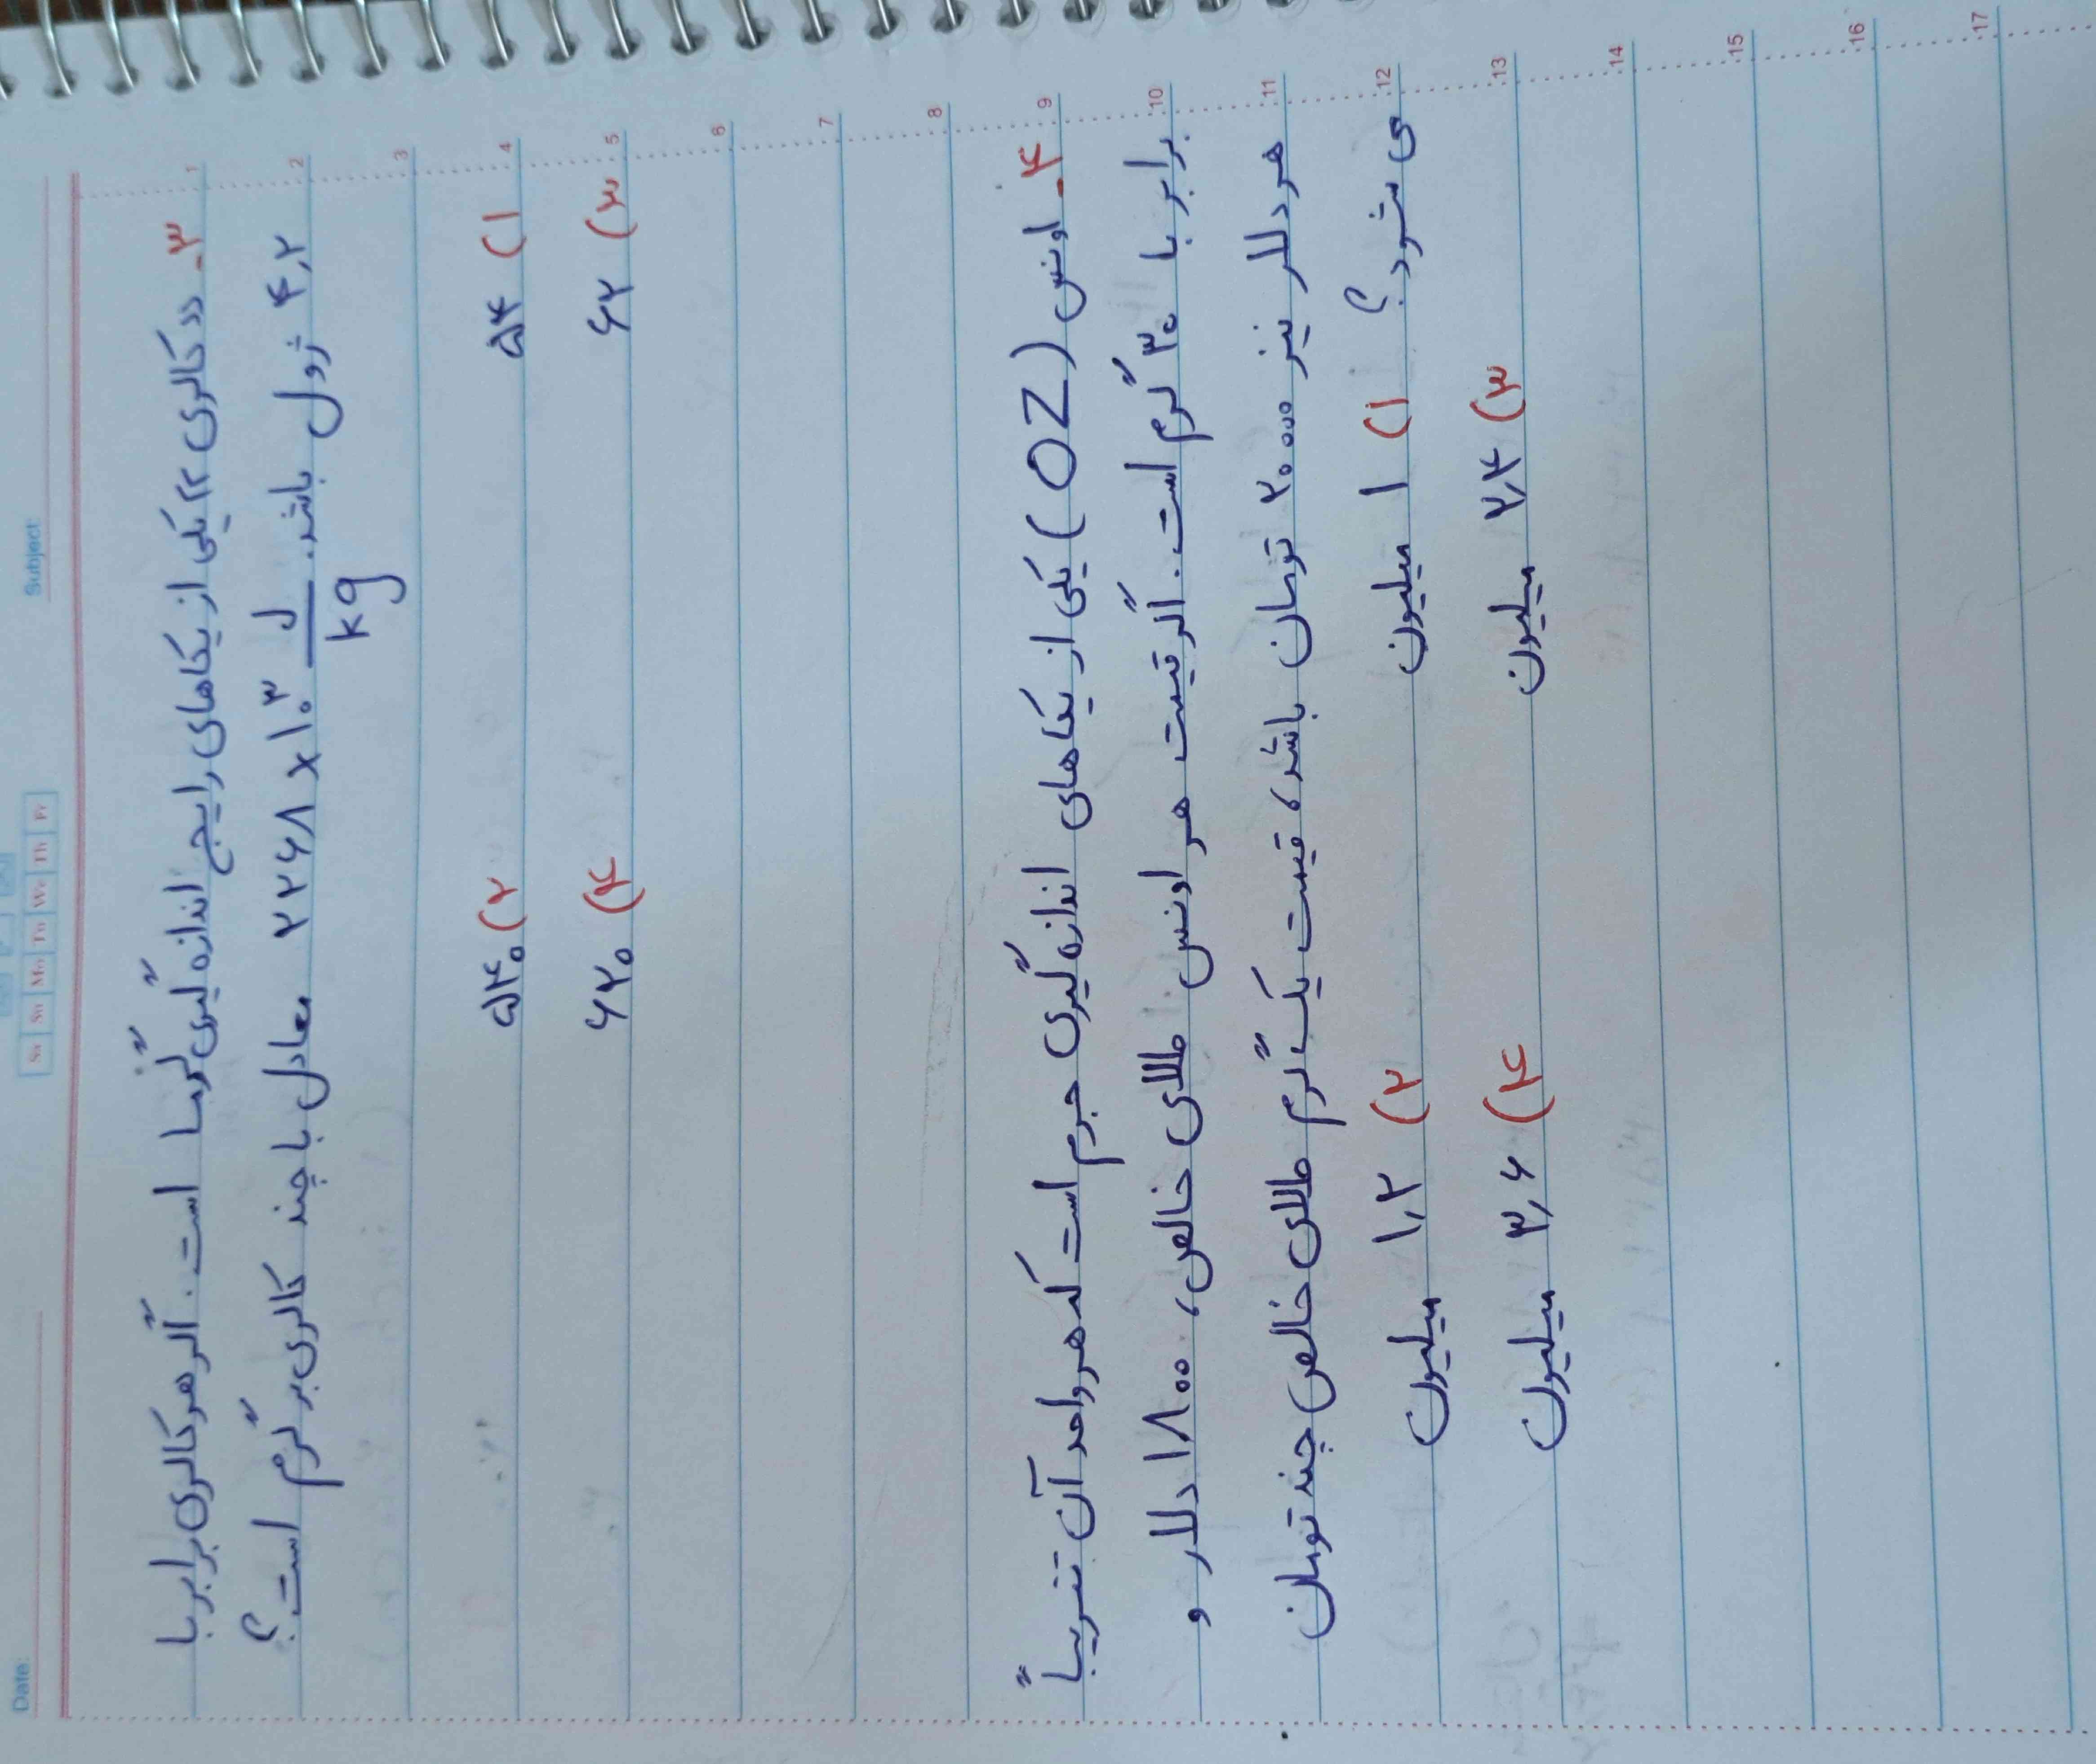 Date:
Sa Su Mo Tu We Th Fr
Subject:
۳- «کالری» یکی از یکاهای رایج اندازه‌گیری گرما است. اگر هر کالری برابر با
۴٫۲ ژول باشد. ۲۲۶۸ × ۱۰^۳ J/kg معادل با چند کالری بر گرم است؟
۱) ۵۴ ۲) ۵۴۰
۳) ۶۲ ۴) ۶۲۰
۴- اونس (OZ) یکی از یکاهای اندازه‌گیری جرم است که هر واحد آن تقریباً
برابر با ۳۰ گرم است. اگر قیمت هر اونس طلای خالص، ۱۸۰۰ دلار و
هر دلار نیز ۲۰۰۰۰ تومان باشد، قیمت یک گرم طلای خالص چند تومان
می شود؟ ۱) ۱ میلیون ۲) ۱٫۲ میلیون
۳) ۲٫۴ میلیون ۴) ۳٫۶ میلیون
1
2
3
4
5
6
7
8
9
10
11
12
13
14
15
16
17